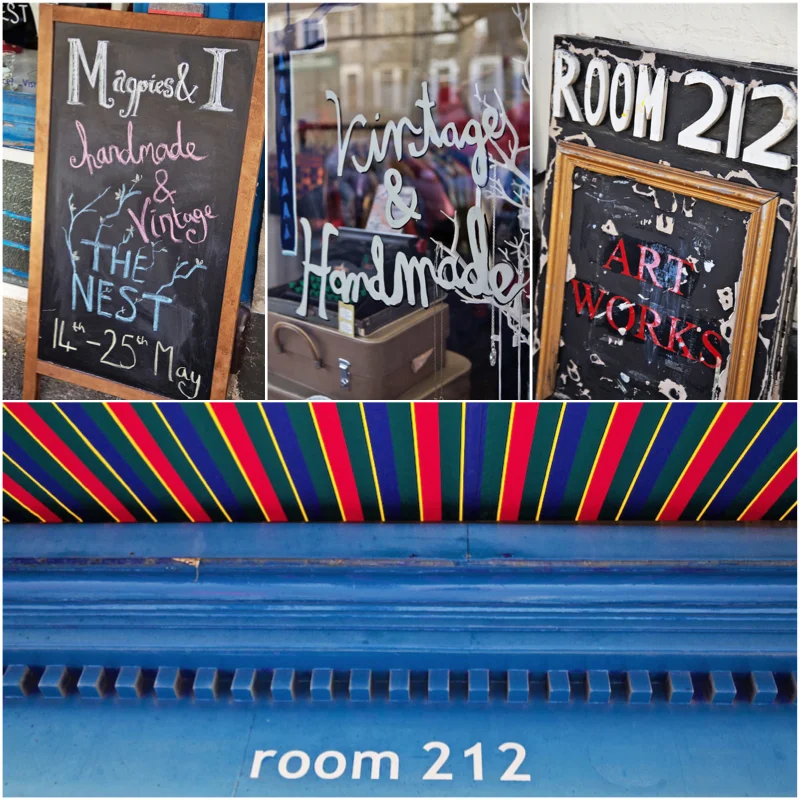 EST
Magpies & I
handmade
&
Vintage
THE
NEST
14th - 25th May
Vintage
&
Handmade
ROOM 212
ART
WORKS
room 212